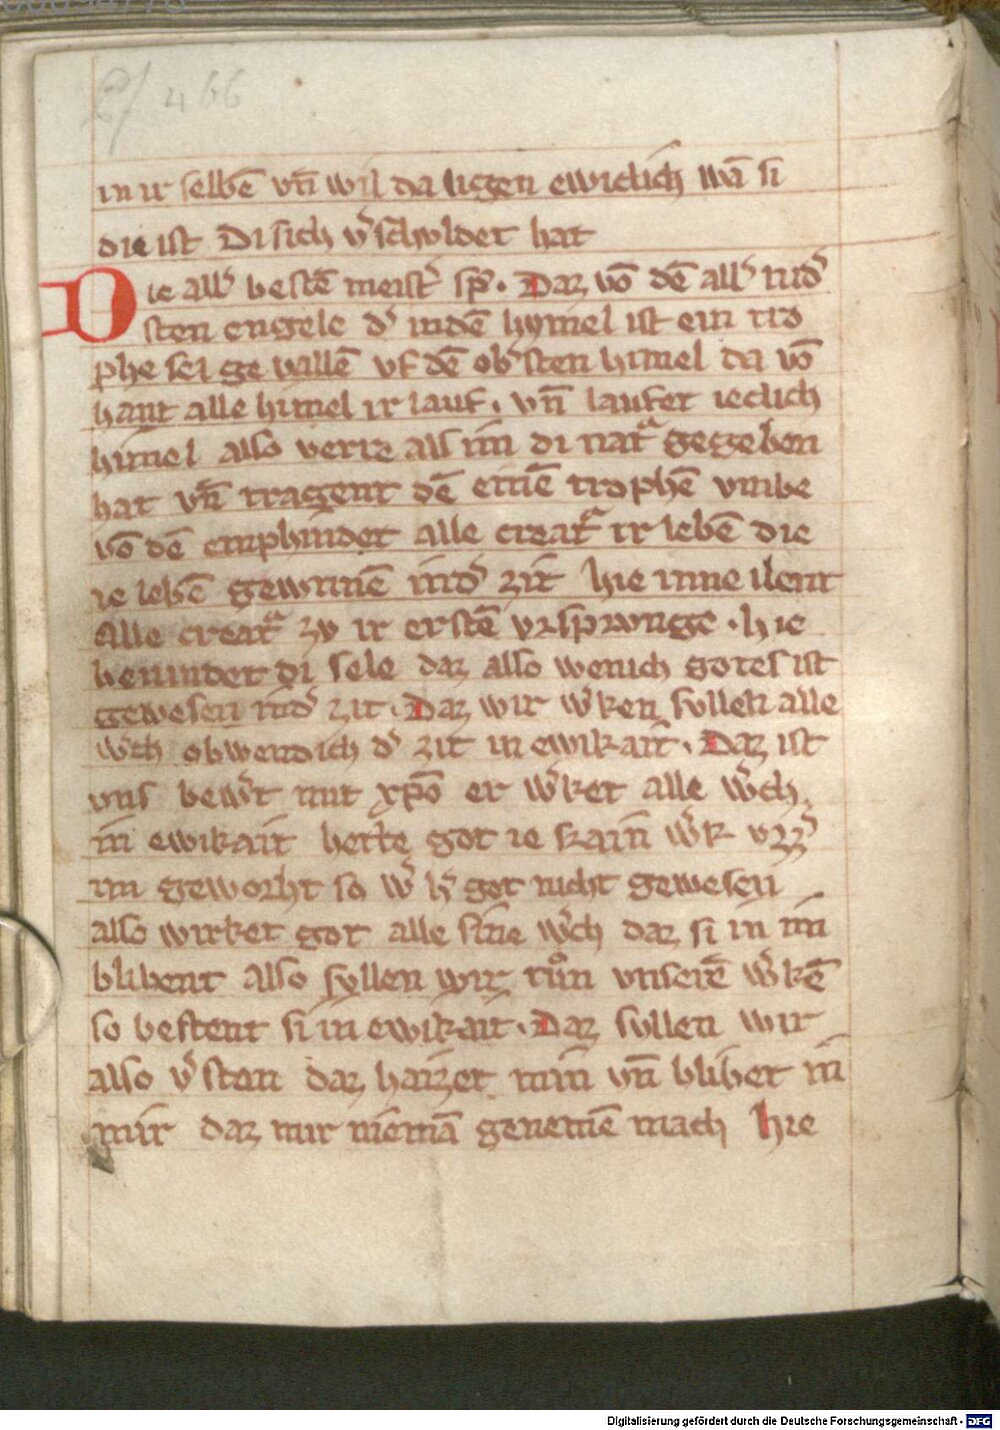 466
in ir selbē vn̄ wil da ligen ewiclich wā si
die ist Di sich v̾schvldet hat
Die all̾ bestē meist̾ sp̾. Daz vō dē all̾ nid̾
sten engele d̾ in dē hymel ist ein tro
phe sei ge vallē vf dē ob̾sten himel da vō
hant alle himel ir lauf. vn̄ laufet ieclich
himel also verre als im di natᷓ gegeben
hat vn̄ tragent dē einē trophē vmbe
vō dē emphindet alle creatᷓ ir lebē die
ie lebē gewnnē in d̾ zit hie inne ilent
alle creatᷓ zv ir erstē vrsprvnge. hie
bevindet di sele daz also wenich gotes ist
gewesen in d̾ zit. Daz wir w̾ken svllen alle
w̾ch obwendich d̾ zit in ewikait. Daz ist
vns bew̾t mit xp̄o er w̾ket alle w̾ch
in ewikait hette got ie kain w̾k vzz̾
im geworht so w̾ h̾ got nicht gewesen
also wirket got alle sine w̾ch daz si in im
blibent also svllen wir tůn vnserē w̾kē
so bestent si in ewikait. Daz svllen wir
also v̾stan daz haizet min vn̄ blibet in
mir daz mir niemā genemē mach hie
Digitalisierung gefördert durch die Deutsche Forschungsgemeinschaft - DFG